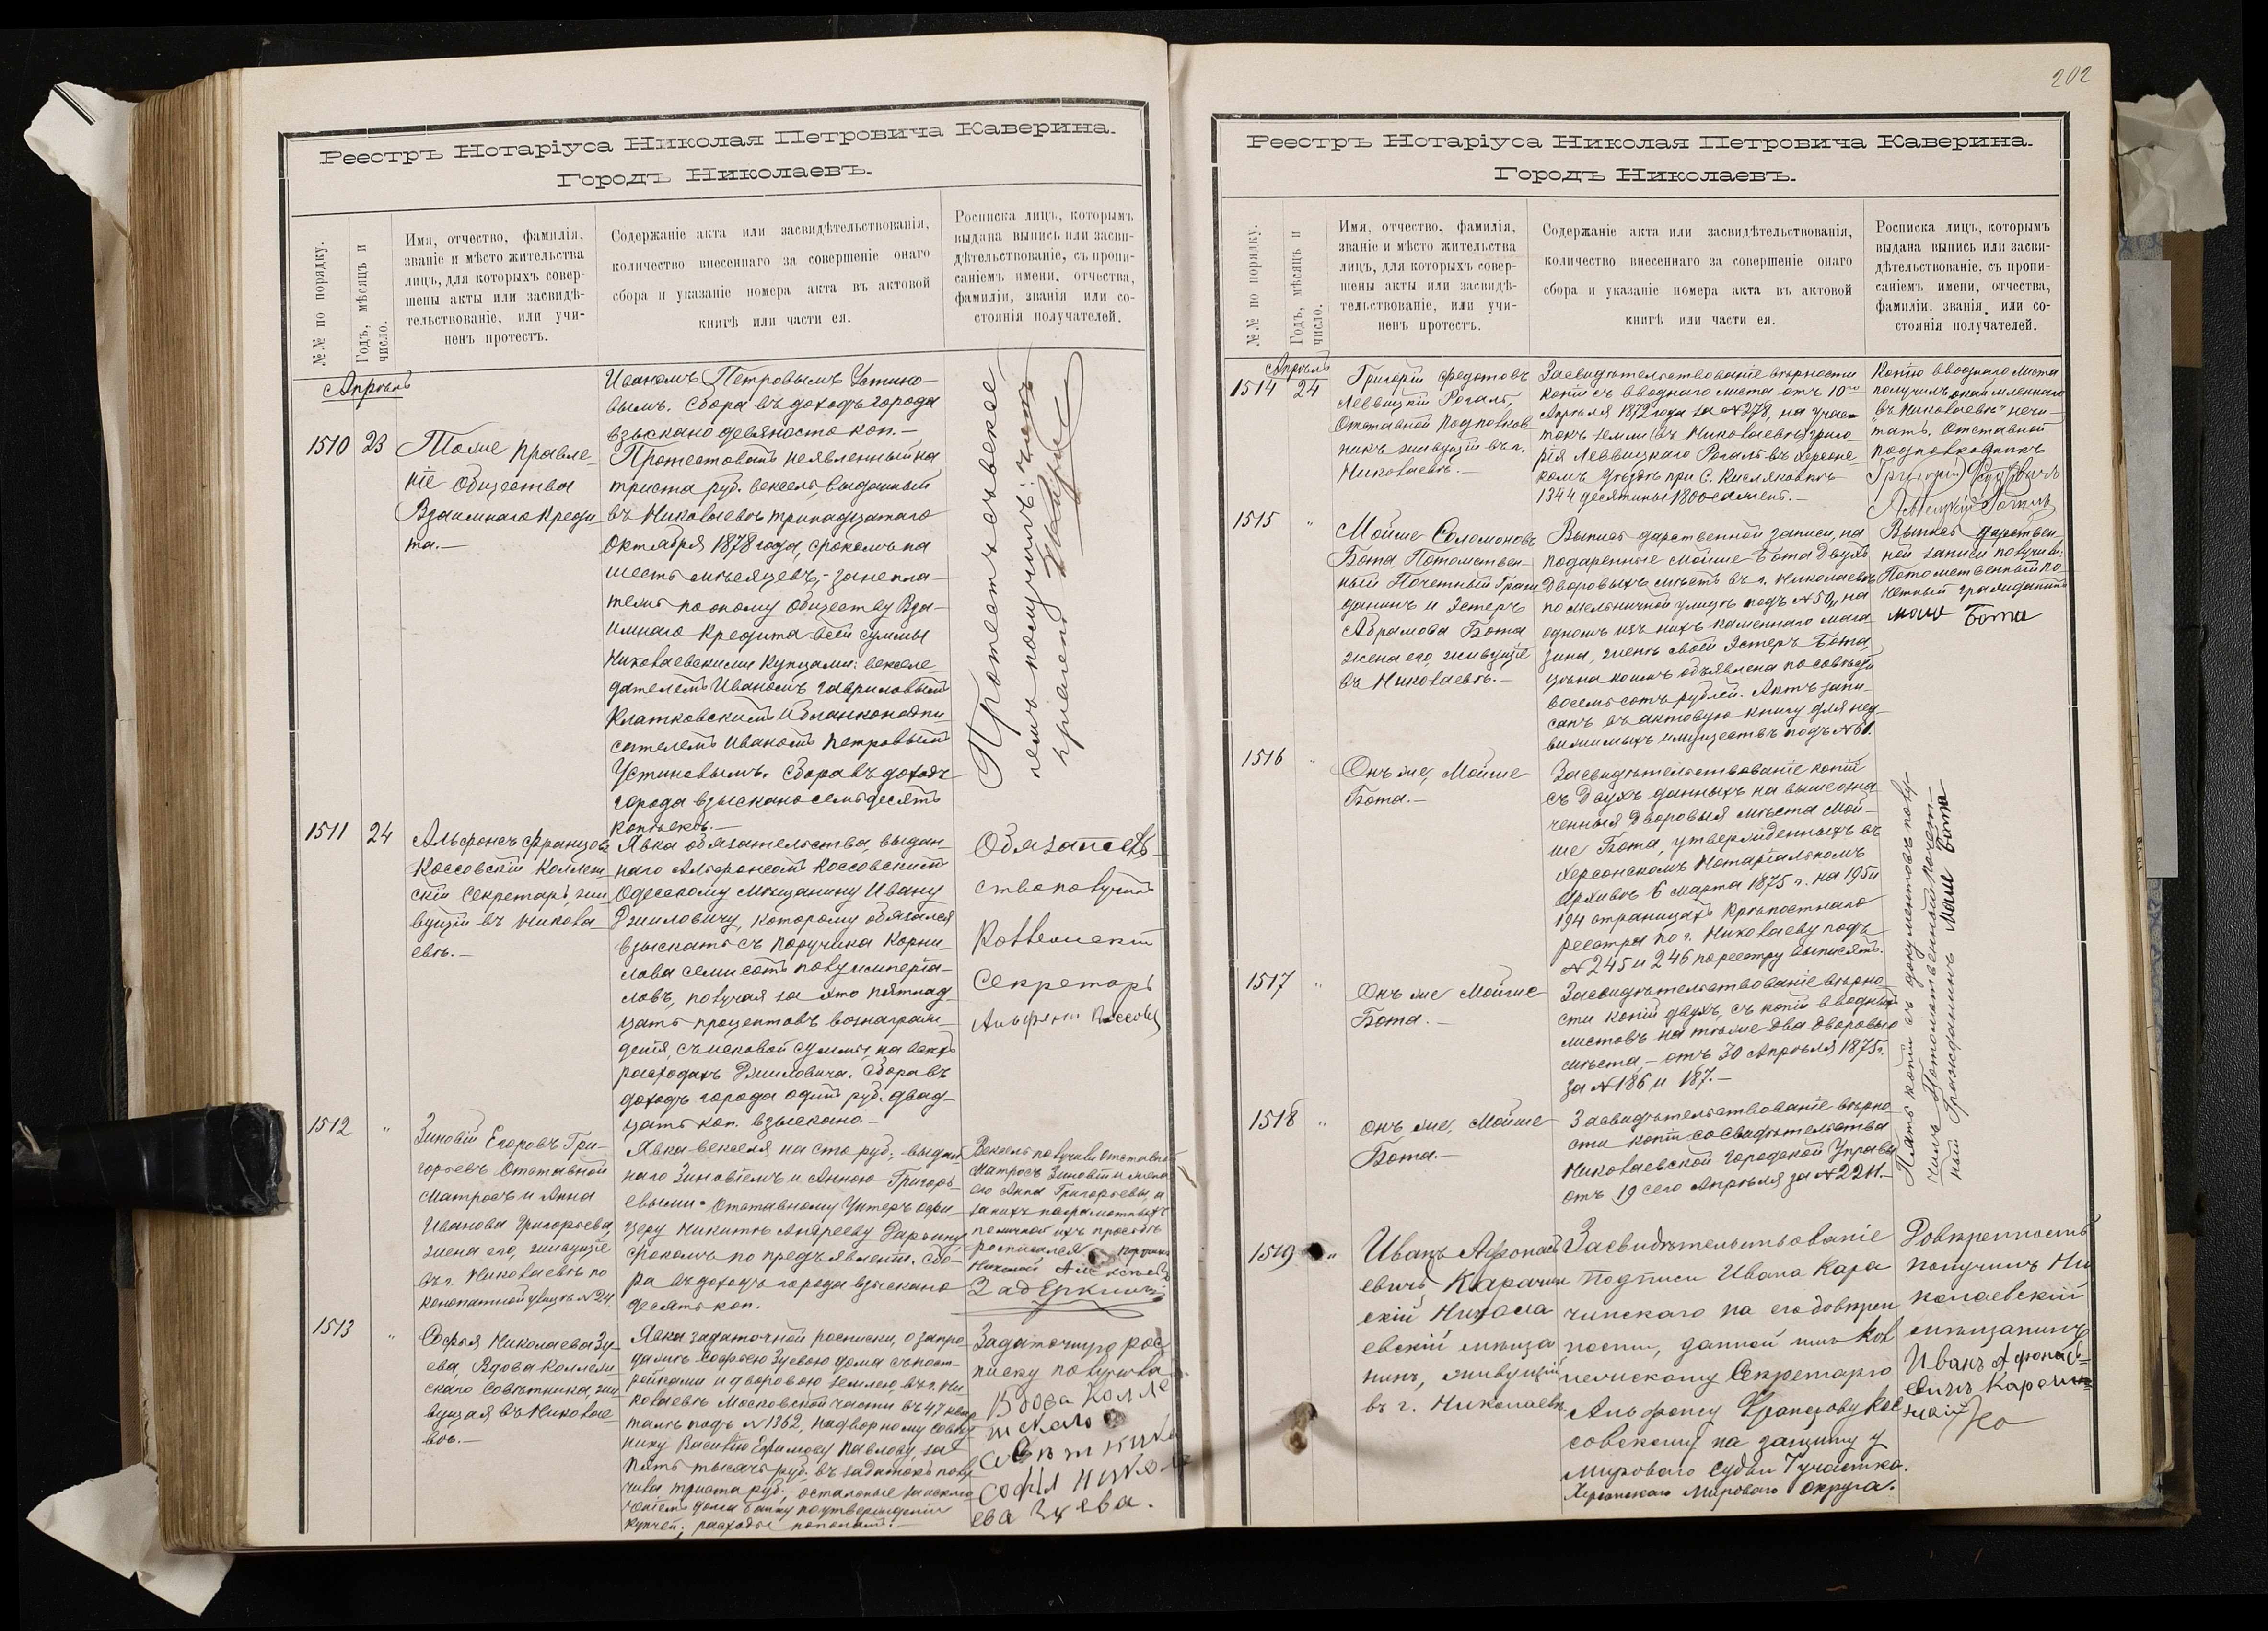 Реестръ Нотаріуса Николая Петровича Каверина.
Городъ Николаевъ.
№№ по порядку.
Годъ, мѣсяцъ и
число.
Имя, отчество, фамилія,
званіе и мѣсто жительства
лицъ, для которыхъ совер-
шены акты или засвидѣ-
тельствованіе, или учи-
ненъ протестъ.
Содержаніе акта или засвидѣтельствованія,
количество внесеннаго за совершеніе онаго
сбора и указаніе номера акта въ актовой
книгѣ или части ея.
Росписка лицъ, которымъ
выдана выпись или засви-
дѣтельствованіе, съ пропи-
саніемъ имени, отчества,
фамиліи, званія или со-
стоянія получателей.
Апрѣль
Иваномъ Петровымъ Устино-
вымъ. Сбора въ доходъ города
взыскано девяносто коп.-
1510
23
Тоже Правле-
ніе Общества
Взаимнаго Креди-
та.-
Протестованъ неявленный на
триста руб. вексель, выданный
въ Николаевѣ тринадцатаго
Октября 1878 года, срокомъ на
шесть мѣсяцевъ,- за непла-
тежъ по оному Обществу Вза-
имнаго Кредита всей суммы
Николаевскими Купцами: векселе-
дателемъ Иваномъ Гавриловымъ
Клатковскимъ и бланконадпи-
сателемъ Иваномъ Петровымъ
Устиновымъ. Сбора въ доходъ
города взыскано семьдесятъ
копѣекъ.-
Протестъ съ векселемъ получилъ: членъ
правленія
1511
24
Альфонсъ Францовъ
Коссовскій Коллеж-
скій Секретарь, жи-
вущій въ Никола-
евѣ.-
Явка обязательства, выдан-
наго Альфонсомъ Коссовскимъ
Одесскому Мѣщанину Ивану
Джиловичу, которому обязался
взыскать съ поручика Корни-
лова семисотъ полуимперіа-
ловъ, получая за это пятнад-
цать процентовъ вознаграж-
денія, съ исковой суммы, на всѣхъ
расходахъ Джиловича. Сбора въ
доходъ города одинъ руб. двад-
цать коп. взыскано.-
Обязатель-
ство получилъ
Коллежскій
Секретарь
Альфонсъ Коссовскій
1512
"
Зиновій Егоровъ Гри-
горьевъ Отставной
Матросъ и Анна
Иванова Григорьева,
жена его, живущіе
въ г. Николаевѣ по
Конопатной улицѣ № 24.
Явка векселя на сто руб., выдан-
наго Зиновіемъ и Анною Григорь-
евыми Отставному Унтеръ офи-
церу Никитѣ Андрееву
срокомъ по предъявленіи. Сбо-
ра въ доходъ города взыскано
десять коп.
Вексель получили Отставной
Матросъ Зиновій и жена
его Анна Григорьевы, а
за нихъ неграмотныхъ
по личной ихъ просьбѣ
росписался
Николай
1513
"
Софья Николаева Зу-
ева, Вдова Коллеж-
скаго Совѣтника, жи-
вущая въ Николае-
вѣ.-
Явка задаточной росписки, о запро-
дажѣ Софьею Зуевою дома съ пост-
ройками и дворовою землею, въ г. Ни-
колаевѣ Московской части въ 47 квар-
талѣ подъ № 1362, надворному совѣт-
нику Василію Ефимову Павлову, за
пять тысячъ руб., въ задатокъ полу-
чила триста руб., остальные за исклю-
ченіемъ долга банку по утвержденіи
купчей; расходы пополамъ.-
Задаточную рос-
писку получила
Вдова Колле
жскаго
совѣтника
Софія Никола
ева Зуева.
202
Реестръ Нотаріуса Николая Петровича Каверина.
Городъ Николаевъ.
№№ по порядку.
Годъ, мѣсяцъ и
число.
Имя, отчество, фамилія,
званіе и мѣсто жительства
лицъ, для которыхъ совер-
шены акты или засвидѣ-
тельствованіе, или учи-
ненъ протестъ.
Содержаніе акта или засвидѣтельствованія,
количество внесеннаго за совершеніе онаго
сбора и указаніе номера акта въ актовой
книгѣ или части ея.
Росписка лицъ, которымъ
выдана выпись или засви-
дѣтельствованіе, съ пропи-
саніемъ имени, отчества,
фамиліи, званія или со-
стоянія получателей.
Апрѣль
1514
24
Григорій Федотовъ
Левицкій Рогаль,
Отставной Подполков-
никъ живущій въ г.
Николаевѣ.-
Засвидѣтельствованіе вѣрности
копіи съ вводнаго листа отъ 10го
Апрѣля 1872 года за № 278, на учас-
токъ земли (въ Николаевѣ) Григо-
рія Левицкаго Рогаль въ Херсонс-
комъ уѣздѣ при С. Кисляковкѣ
1344 десятины 1800 сажень.-
Копію вводнаго листа
получилъ
въ Николаевѣ
Отставной
подполковникъ
Григорій
Левицкій Рогаль
1515
"
Мойше Соломоновъ
Бота, Потомствен-
ный Почетный Граж-
данинъ и Эстеръ
Абрамова Бота
жена его, живущіе
въ Николаевѣ.-
Выпись дарственной записи, на
подаренные Мойше Бота двухъ
дворовыхъ мѣстъ въ г. Николаевѣ
по Мельничной улицѣ подъ № 50, на
одномъ изъ нихъ каменнаго мага-
зина, женѣ своей Эстеръ Бота,
цѣна коимъ объявлена по совѣсти
восемьсотъ рублей. Актъ запи-
санъ въ актовую книгу для нед-
вижимыхъ имуществъ подъ № 61.
Выпись дарствен-
ной записи получилъ:
Потомственный По-
четный гражданинъ
Бота
1516
"
Онъ же, Мойше
Бота.-
Засвидѣтельствованіе копій
съ двухъ данныхъ на вышеозна-
ченныя дворовыя мѣста Мой-
ше Бота, утвержденныхъ въ
Херсонскомъ Нотаріальномъ
Архивѣ 6 Марта 1875 г. на 195 и
194 страницахъ Крѣпостнаго
реестра по г. Николаеву подъ
№ 245 и 246 по реестру
1517
"
Онъ же Мойше
Бота.-
Засвидѣтельствованіе вѣрно-
сти копій двухъ, съ копій вводныхъ
листовъ на тѣже два дворовые
мѣста - отъ 30 Апрѣля 1875 г.
за № 186 и 187.-
1518
"
Онъ же, Мойше
Бота.-
Засвидѣтельствованіе вѣрно-
сти копіи со свидѣтельства
Николаевской Городской Управы
отъ 19 сего Апрѣля за № 2211.-
Пять копій съ документовъ полу-
чилъ Потомственный почет-
ный Гражданинъ Бота
1519
"
Иванъ Афонась
евичъ Карачин
скій Никола
евскій мѣща
нинъ, живущій
въ г. Николаевѣ
Засвидѣтельствованіе
подписи Ивана Кара
чинскаго на его довѣрен
ности, данной имъ Кол
лежскому Секретарю
Альфонсу Францову Кос
совскому на защиту у
Мироваго Судьи 7 участка.
Херсонскаго Мироваго Округа.
Довѣренность
получилъ Ни
колаевскій
мѣщанинъ
Иванъ Афонась
евичъ Карачин
скій